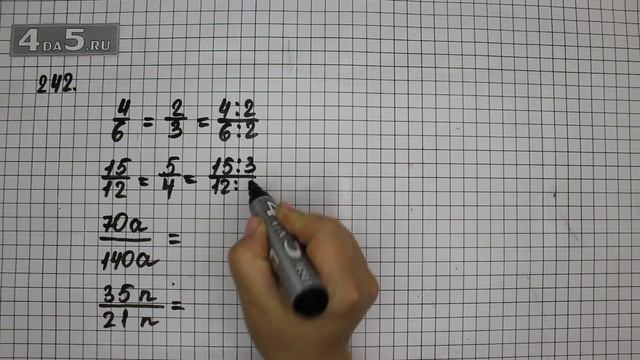 4DA5.RU
242.
4/6 = 2/3 = 4:2/6:2
15/12 = 5/4 = 15:3/12:
70a/140a =
35n/21n =
4DA5